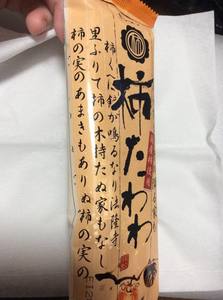 柿
柿たわわ
柿くへば鐘が鳴るなり法隆寺
里ふりて柿の木持たぬ家もなし
柿の実のあまきもありぬ柿の実の